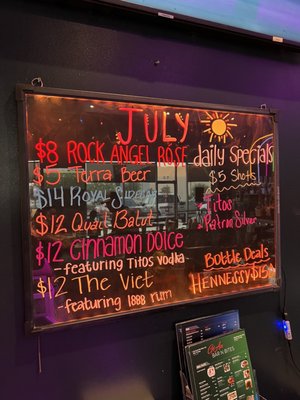 JULY
$8 ROCK ANGEL ROSE
$5 Terra Beer
$14 ROYAL
$12 Quail Balut
$12 CINNAMON DOLCE
-featuring Titos vodka
$12 The Viet
-featuring 1888 rum
daily specials
$5 Shots
Titos
Patron Silver
BOTTLE DEALS
HENNESSY $15
BAR N BITES